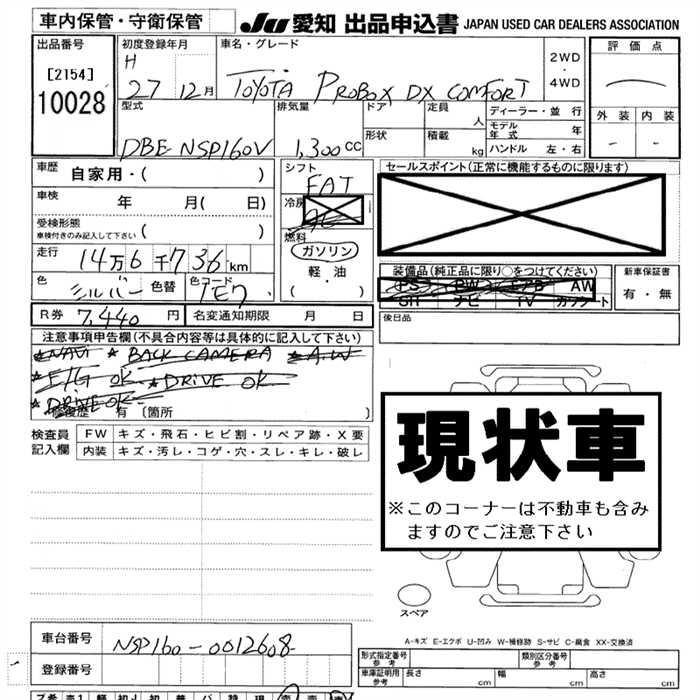 車内保管・守衛保管 JU 愛知 出品申込書 JAPAN USED CAR DEALERS ASSOCIATION
出品番号 初度登録年月 車名・グレード 評価点
[2154] H 2WD
10028 27 12月 TOYOTA PROBOX DX COMFORT ・
4WD
型式 排気量 ドア 定員 ディーラー・並行 外装 内装
人 モデル年式 年
DBE NSP160V 1,300cc 形状 積載 kg ハンドル 左・右 — —
車歴 自家用・( ) シフト セールスポイント(正常に機能するものに限ります)
FAT
車検 年 月( 日) 冷房
AC
受検形態 燃料
車検付きのみ記入して下さい ( ) ガソリン
走行 14万6千736km 軽・油 装備品(純正品に限り○をつけてください) 新車保証書
色 シルバー 色替 色コード 1E7 ( ) PS PW AW 有・無
SR ナビ TV カワシート
R券 7,440円 名変通知期限 月 日 後日品
注意事項申告欄(不具合内容等は具体的に記入して下さい)
★NAVI ★ BACK CAMERA ★A.W
★E/G OK ★DRIVE OK
★DRIVE OK
修復歴 有 〔箇所 〕
検査員 FW キズ・飛石・ヒビ割・リペア跡・X要
記入欄 内装 キズ・汚レ・コゲ・穴・スレ・キレ・破レ
現状車
※このコーナーは不動車も含み
ますのでご注意下さい
スペア
A-キズ E-エクボ U-凹み W-補修跡 S-サビ C-腐食 XX-交換済
車台番号 NSP160-0012608
登録番号
形式指定番号 参考 類別区分番号 参考
車庫証明用 参考 長さ cm 幅 cm 高さ cm